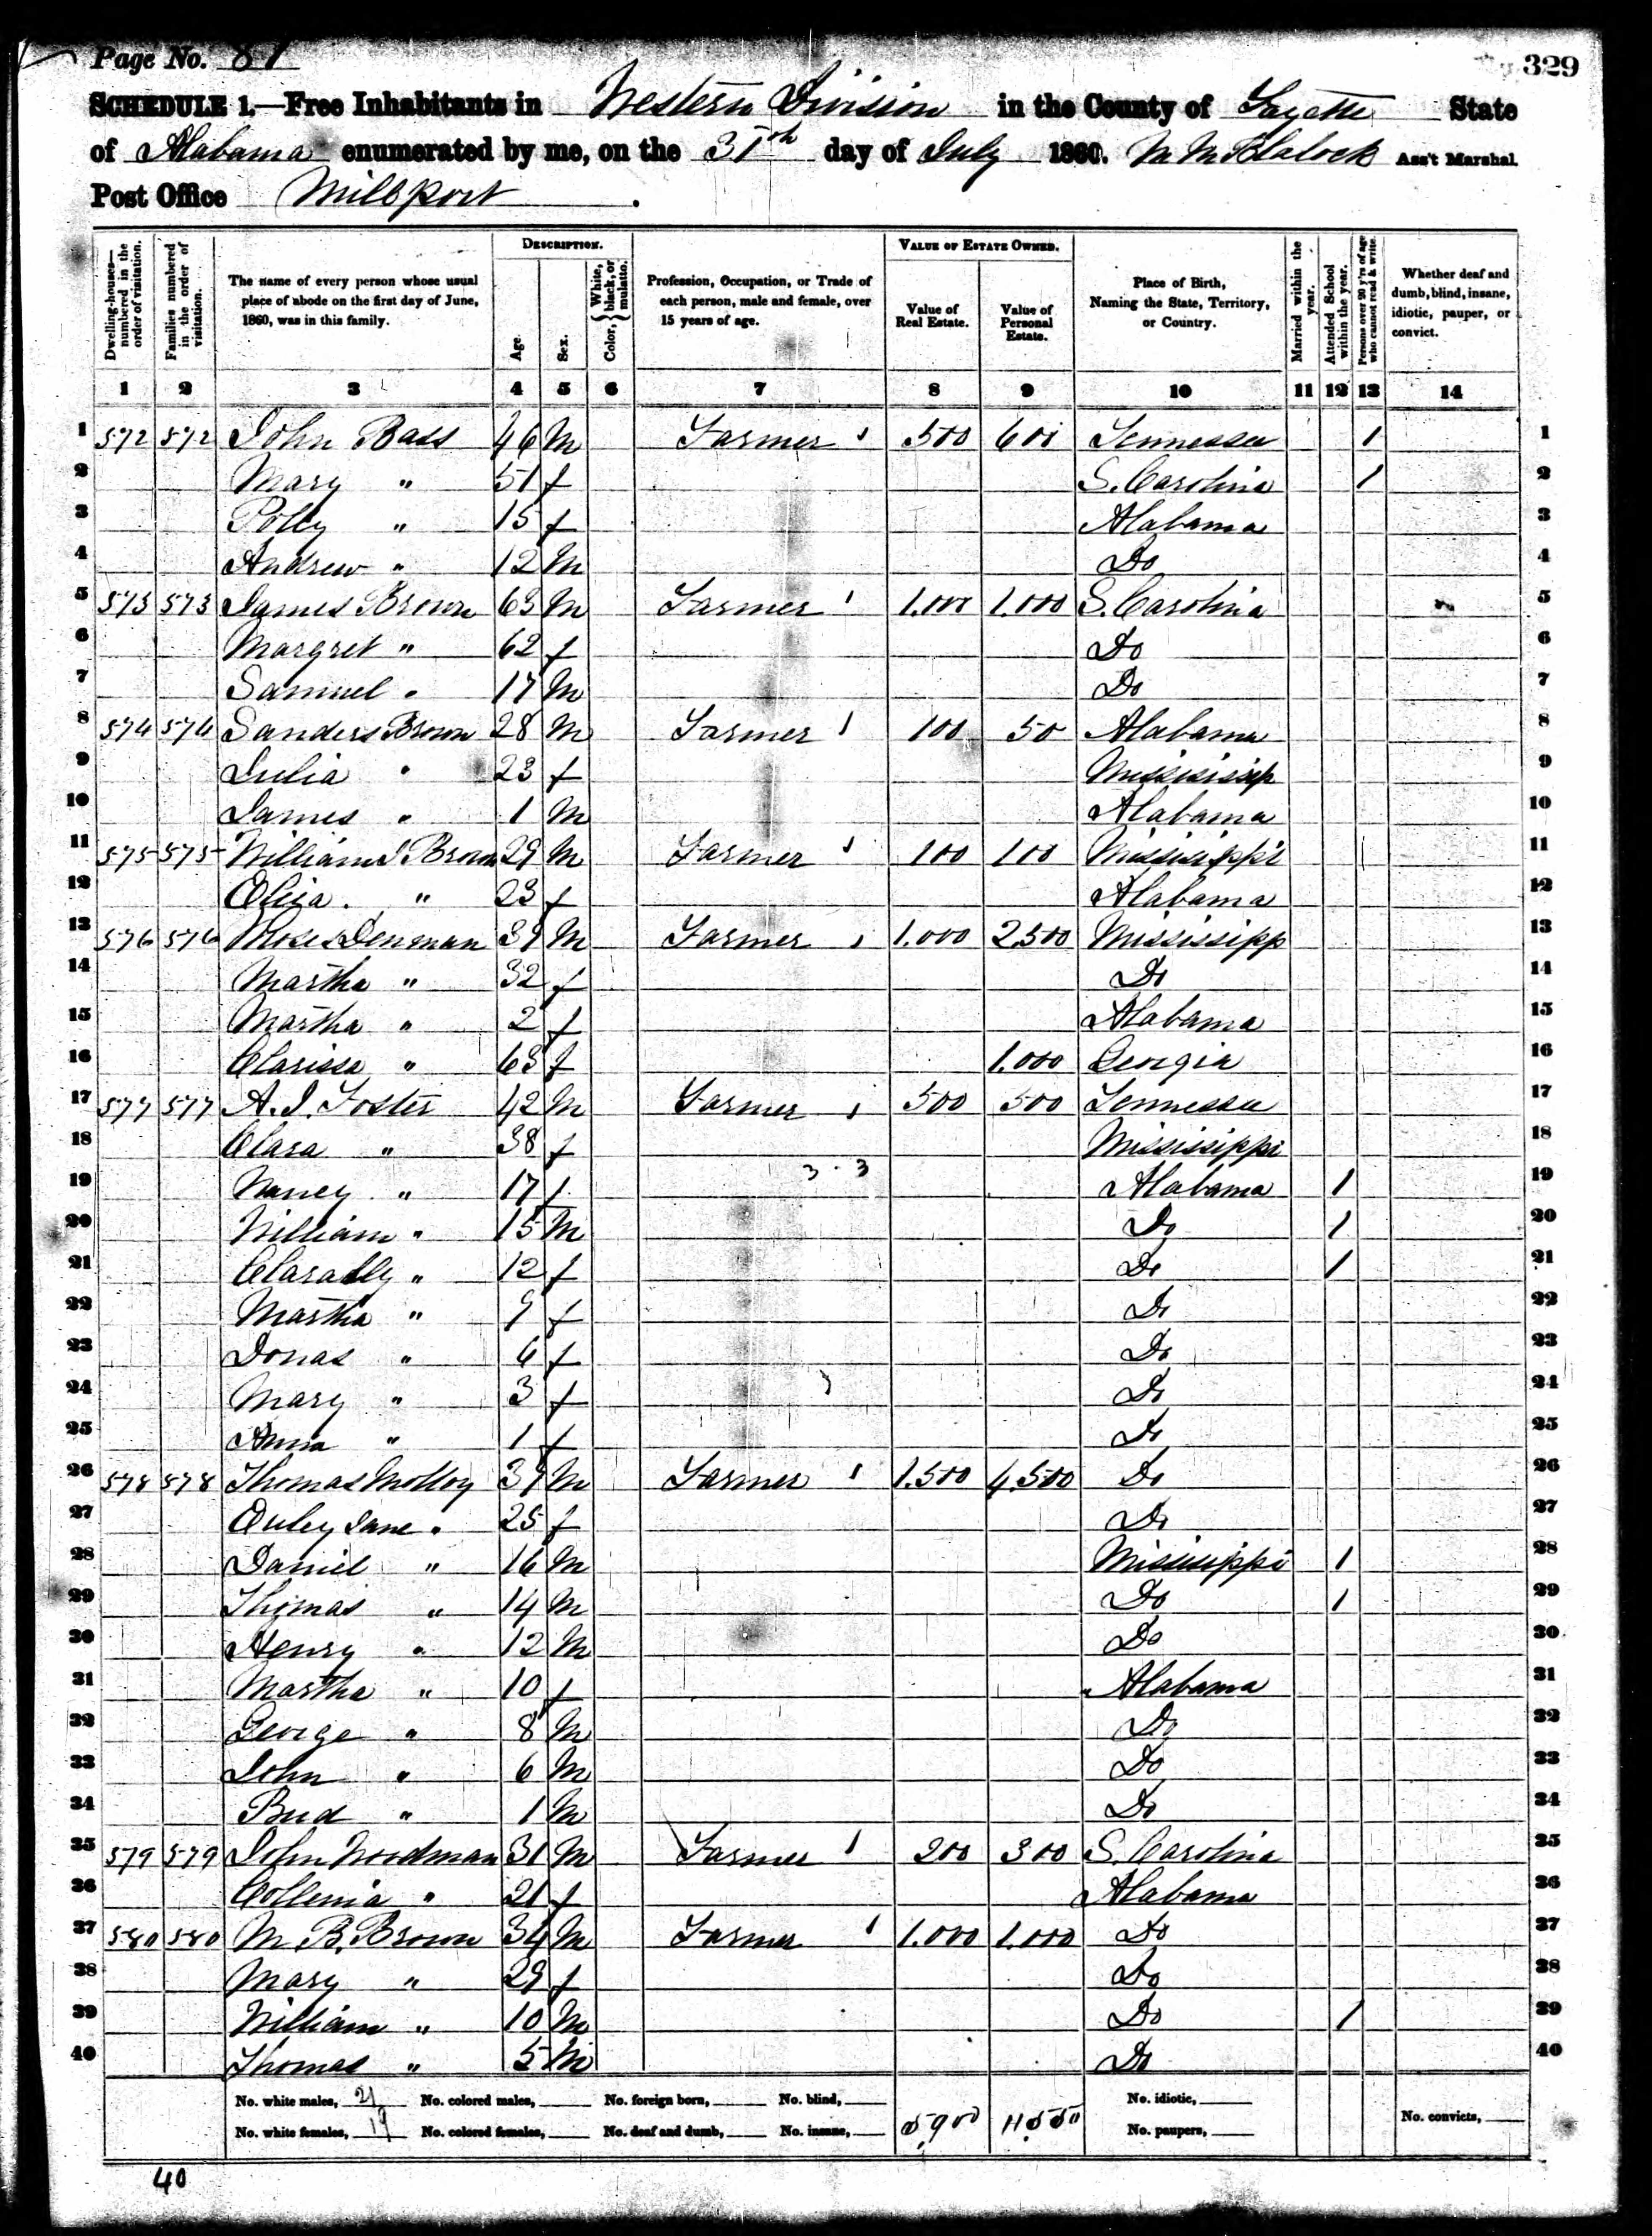 Page No. 81
329
SCHEDULE 1.—Free Inhabitants in Western Division in the County of Fayette State
of Alabama enumerated by me, on the 31th day of July 1860. M M Blalock Ass't Marshal.
Post Office Millport.
Dwelling-houses—numbered in the order of visitation.
Families numbered in the order of visitation.
The name of every person whose usual place of abode on the first day of June, 1860, was in this family.
DESCRIPTION.
Age.
Sex.
Color, { White, black, or mulatto.
Profession, Occupation, or Trade of each person, male and female, over 15 years of age.
VALUE OF ESTATE OWNED.
Value of Real Estate.
Value of Personal Estate.
Place of Birth, Naming the State, Territory, or Country.
Married within the year.
Attended School within the year.
Persons over 20 y'rs of age who cannot read & write.
Whether deaf and dumb, blind, insane, idiotic, pauper, or convict.
1 2 3 4 5 6 7 8 9 10 11 12 13 14
1 572 572 John Bass 46 M Farmer 1 500 600 Tennessee 1 1
2 Mary " 51 f S. Carolina 1 2
3 Polly " 15 f Alabama 3
4 Andrew " 12 M Do 4
5 573 573 James Brown 63 M Farmer 1 1.000 1.000 S. Carolina 5
6 Margret " 62 f Do 6
7 Samuel " 17 M Do 7
8 574 574 Sanders Brown 28 M Farmer 1 100 50 Alabama 8
9 Julia " 23 f Missisisip 9
10 James " 1 M Alabama 10
11 575 575 William J Brown 29 M Farmer 1 100 100 Missisippi 11
12 " 23 f Alabama 12
13 576 576 Moses Denman 39 M Farmer 1 1.000 2500 Mississipp 13
14 Martha " 32 f Do 14
15 Martha " 2 f Alabama 15
16 Clarissa " 63 f 1.000 Georgia 16
17 577 577 A. J. Foster 42 M Farmer 1 500 500 Tennessee 17
18 Clara " 38 f Mississippi 18
3 - 3
19 Nancy " 17 f Alabama 1 19
20 William " 15 M Do 1 20
21 " 12 f Do 1 21
22 Martha " 9 f Do 22
23 Jonas " 6 f Do 23
24 Mary " 3 f Do 24
25 Anna " 1 f Do 25
26 578 578 Thomas Molloy 39 M Farmer 1 1.500 4.500 Do 26
27 Jane " 25 f Do 27
28 Daniel " 16 M Missisippi 1 28
29 Thomas " 14 M Do 1 29
30 Henry " 12 M Do 30
31 Martha " 10 f Alabama 31
32 George " 8 M Do 32
33 John " 6 M Do 33
34 Bud " 1 M Do 34
35 579 579 John Woodman 31 M Farmer 1 200 300 S. Carolina 35
36 " 21 f Alabama 36
37 580 580 M. B. Brown 34 M Farmer 1 1.000 1.000 Do 37
38 Mary " 29 f Do 38
39 William " 10 M Do 1 39
40 Thomas " 5 M Do 40
No. white males, 21 No. colored males, No. foreign born, No. blind, 5,900 11,550 No. idiotic, No. convicts,
No. white females, 19 No. colored females, No. deaf and dumb, No. insane, No. paupers,
40